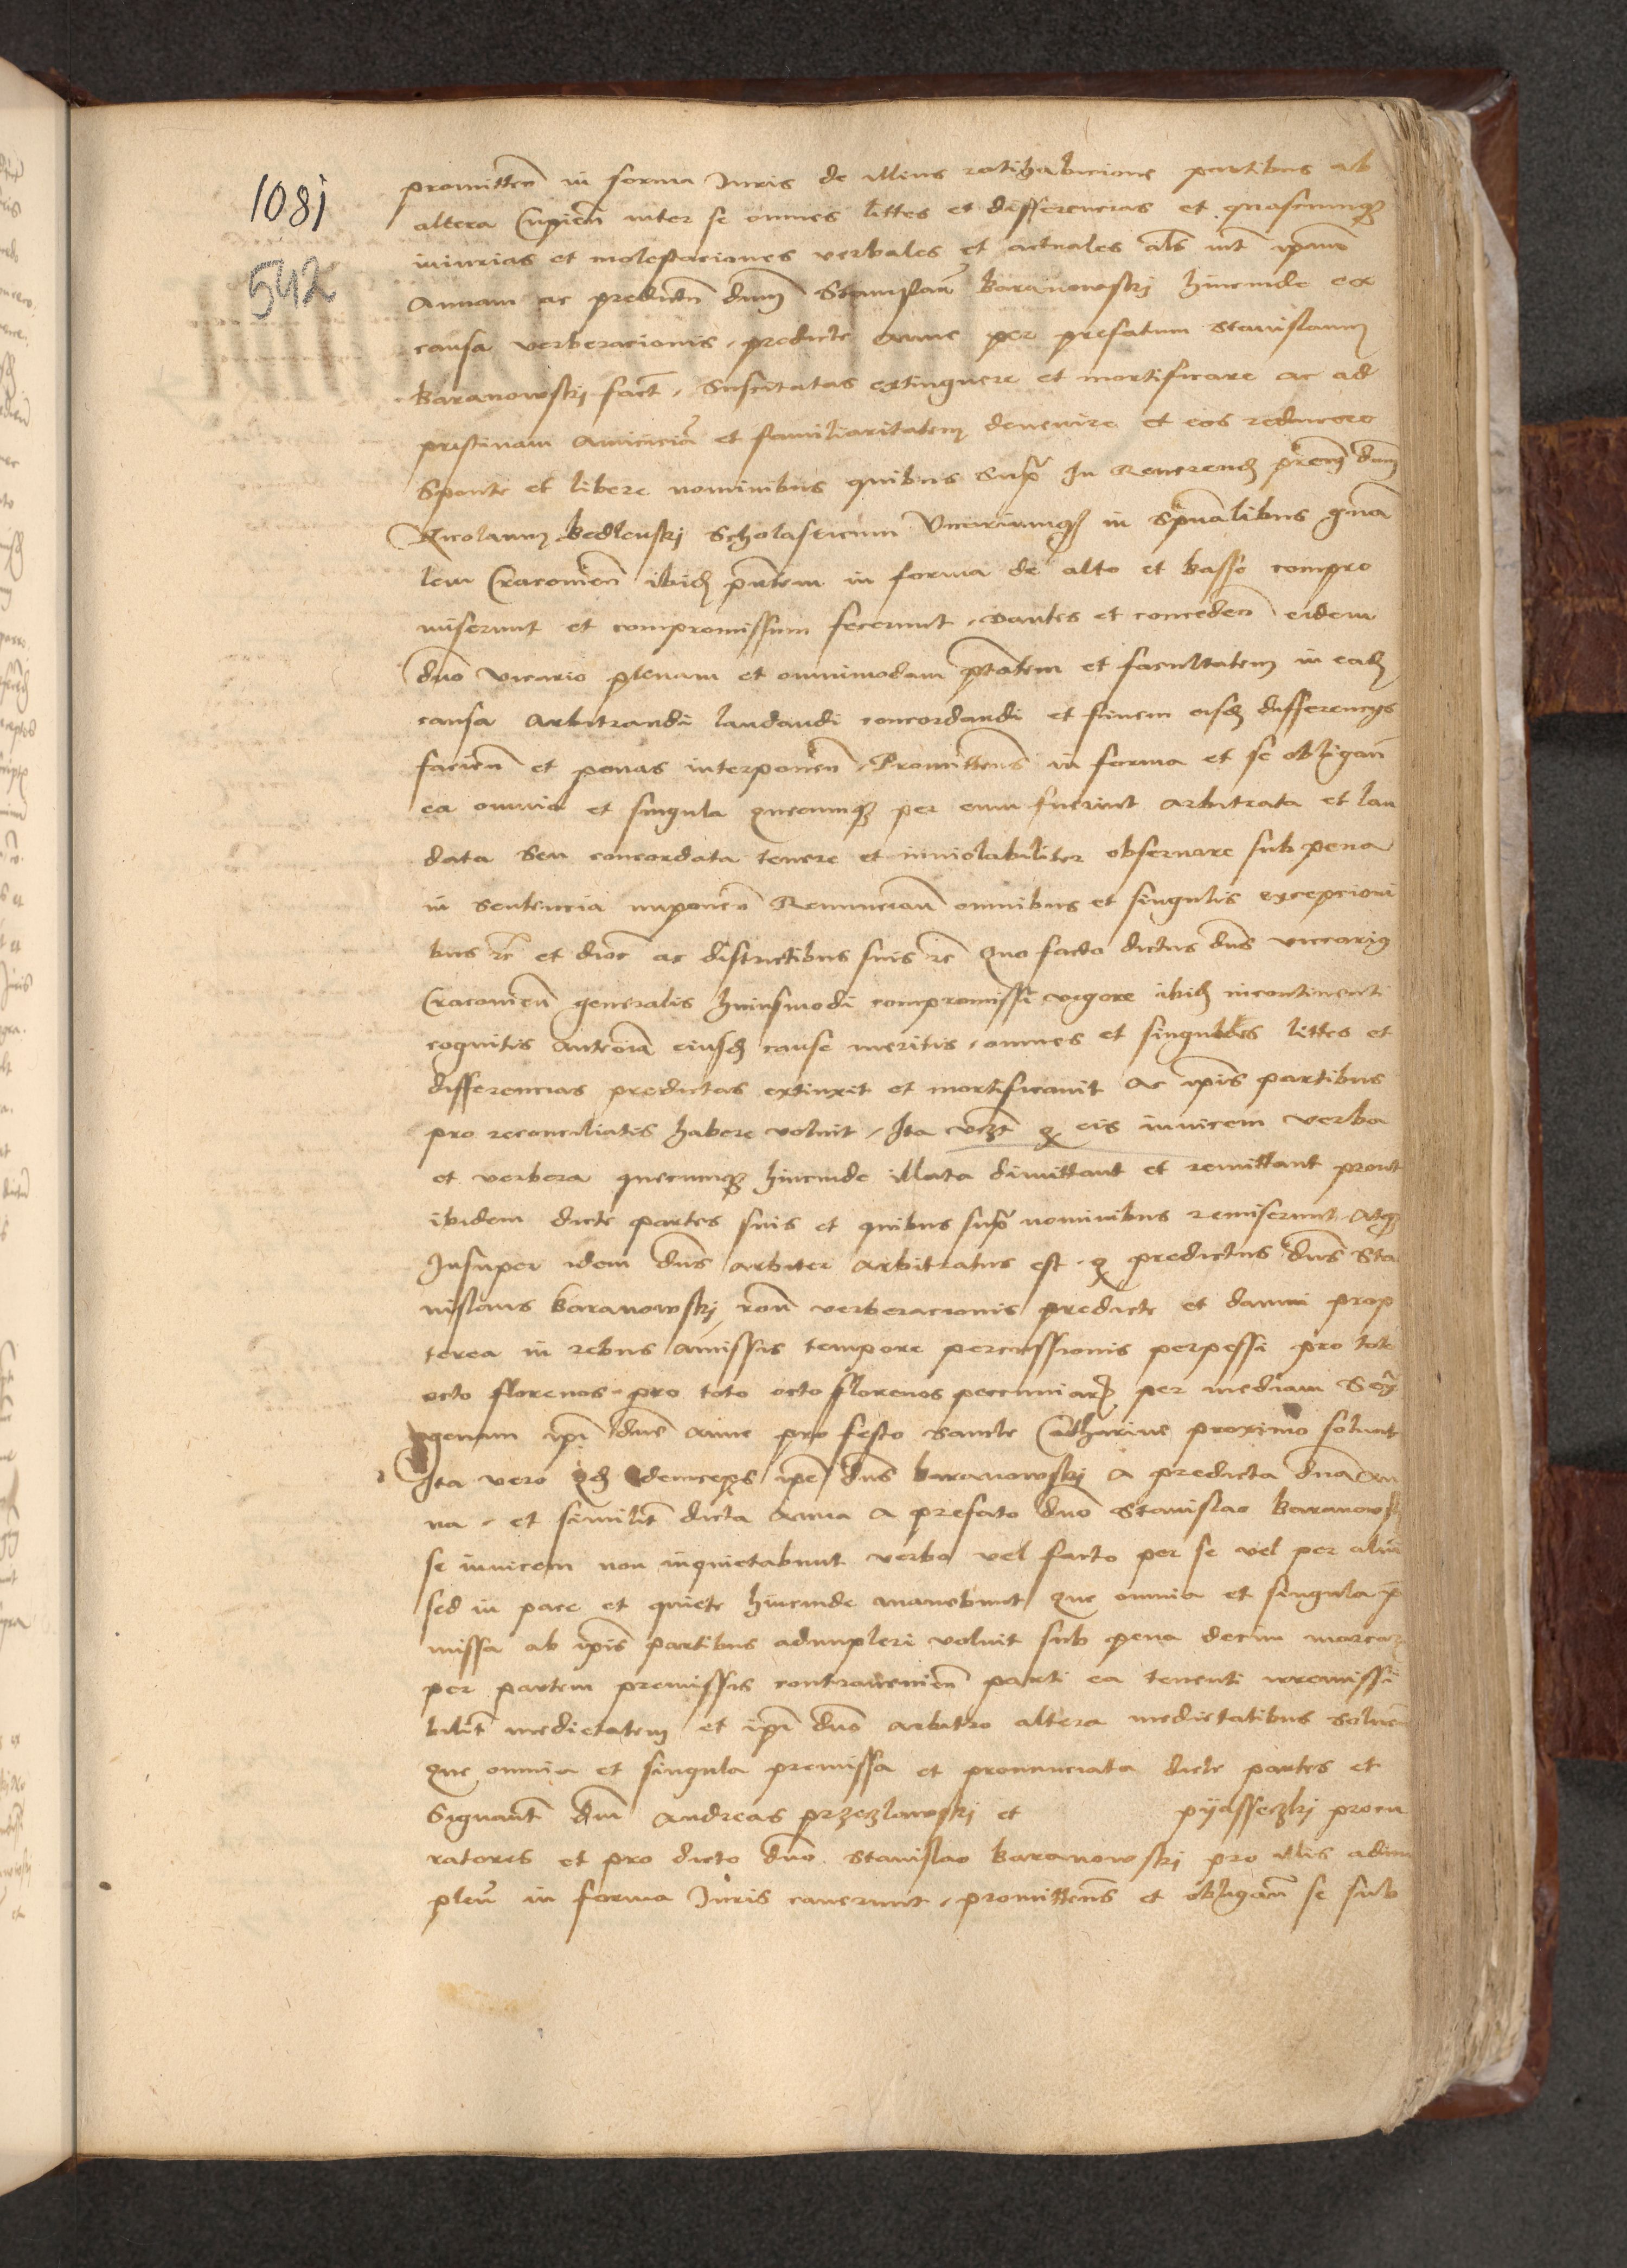 1081
542
promitten in forma Iuris de illius ratihabicione partibus ab
altera Cupien inter se omnes littes et differencias et quascunq
iniurias et molestaciones verbales et actuales als int ipam
Annam ac predictu dnm Stanislau Baranowskj hincinde ex
causa verberacionis predicte Anne per prefatum Stanislaum
Baranowskj fact, Suscitatas extinguere et mortificare ac ad
pristinam Amiciciã et familiaritatem devenire et eos reducere
Sponte et libere nominibus quibus Supra In Reverend prem dnm
Nicolaum Bedlenskj Scholasticum Vicariumq in Spualibus gna
lem Cracovien ibid pntem in forma de alto et basso compro
miserunt et compromissum fecerunt, Dantes et conceden eidem
dno vicario plenam et omnimodam ptatem et facultatem in ead
causa Arbitrandi laudandi concordandi et finem eisd differencijs
facien et penas interponen, Promittens in forma et se obligan
ea omnia et singula quecunq per eum fuerint arbitrata et lau
data Seu concordata tenere et inviolabiliter observare sub pena
in Sentencia imponen Renuncian omnibus et singulis excepcioni
bus rc et dioc ac districtibus suis rc Quo facto dictus dns vicarius
Cracovien generalis huiusmodi compromissi vigore ibid incontinenti
cognitis Anteoia eiusd cause meritis, omnes et singulas littes et
differencias predictas extinxit et mortificavit Ac ipis partibus
pro reconciliatis habere voluit, Ita vczt q eis invicem verba
et verbera quecunq hincinde illata dimittant et remittant prout
ibidem dicte partes suis et quibus supra nominibus remiserunt Atq
Insuper idem dns Arbiter Arbitratus est q predictus dns Sta
nislaus Baranowskj ron verberacionis predicte et damni prop
terea in rebus amissis tempore percussionis perpessi pro toto
octo florenos pro toto octo florenos peccuniar per mediam Sex
genam ipi dne Anne pro festo Sancte Catharine proximo solvat
Ita vero qd deinceps ipe dns Baranowskj A predicta dna An
na, et similit dicta Anna A prefato dno Stanislao Baranowskj
se invicem non inquietabunt verbo vel facto per se vel per aliu
sed in pace et quiete hincinde manebunt Que omnia et singula p
missa ab ipis partibus adimpleri voluit sub pena decim marcar
per partem premissis contravenien parti ea tenenti irremissi
bilit medietatem et ipi dno arbitro altera medietatibus Solven
Que omnia et singula premissa et pronunciata dicte partes et
Signant dni Andreas Przeczlawskj et pijasseczkj procu
ratores et pro dicto dno Stanislao Baranowskj pro illis adim
plen in forma Iuris caverunt, promittens et obligan se sub